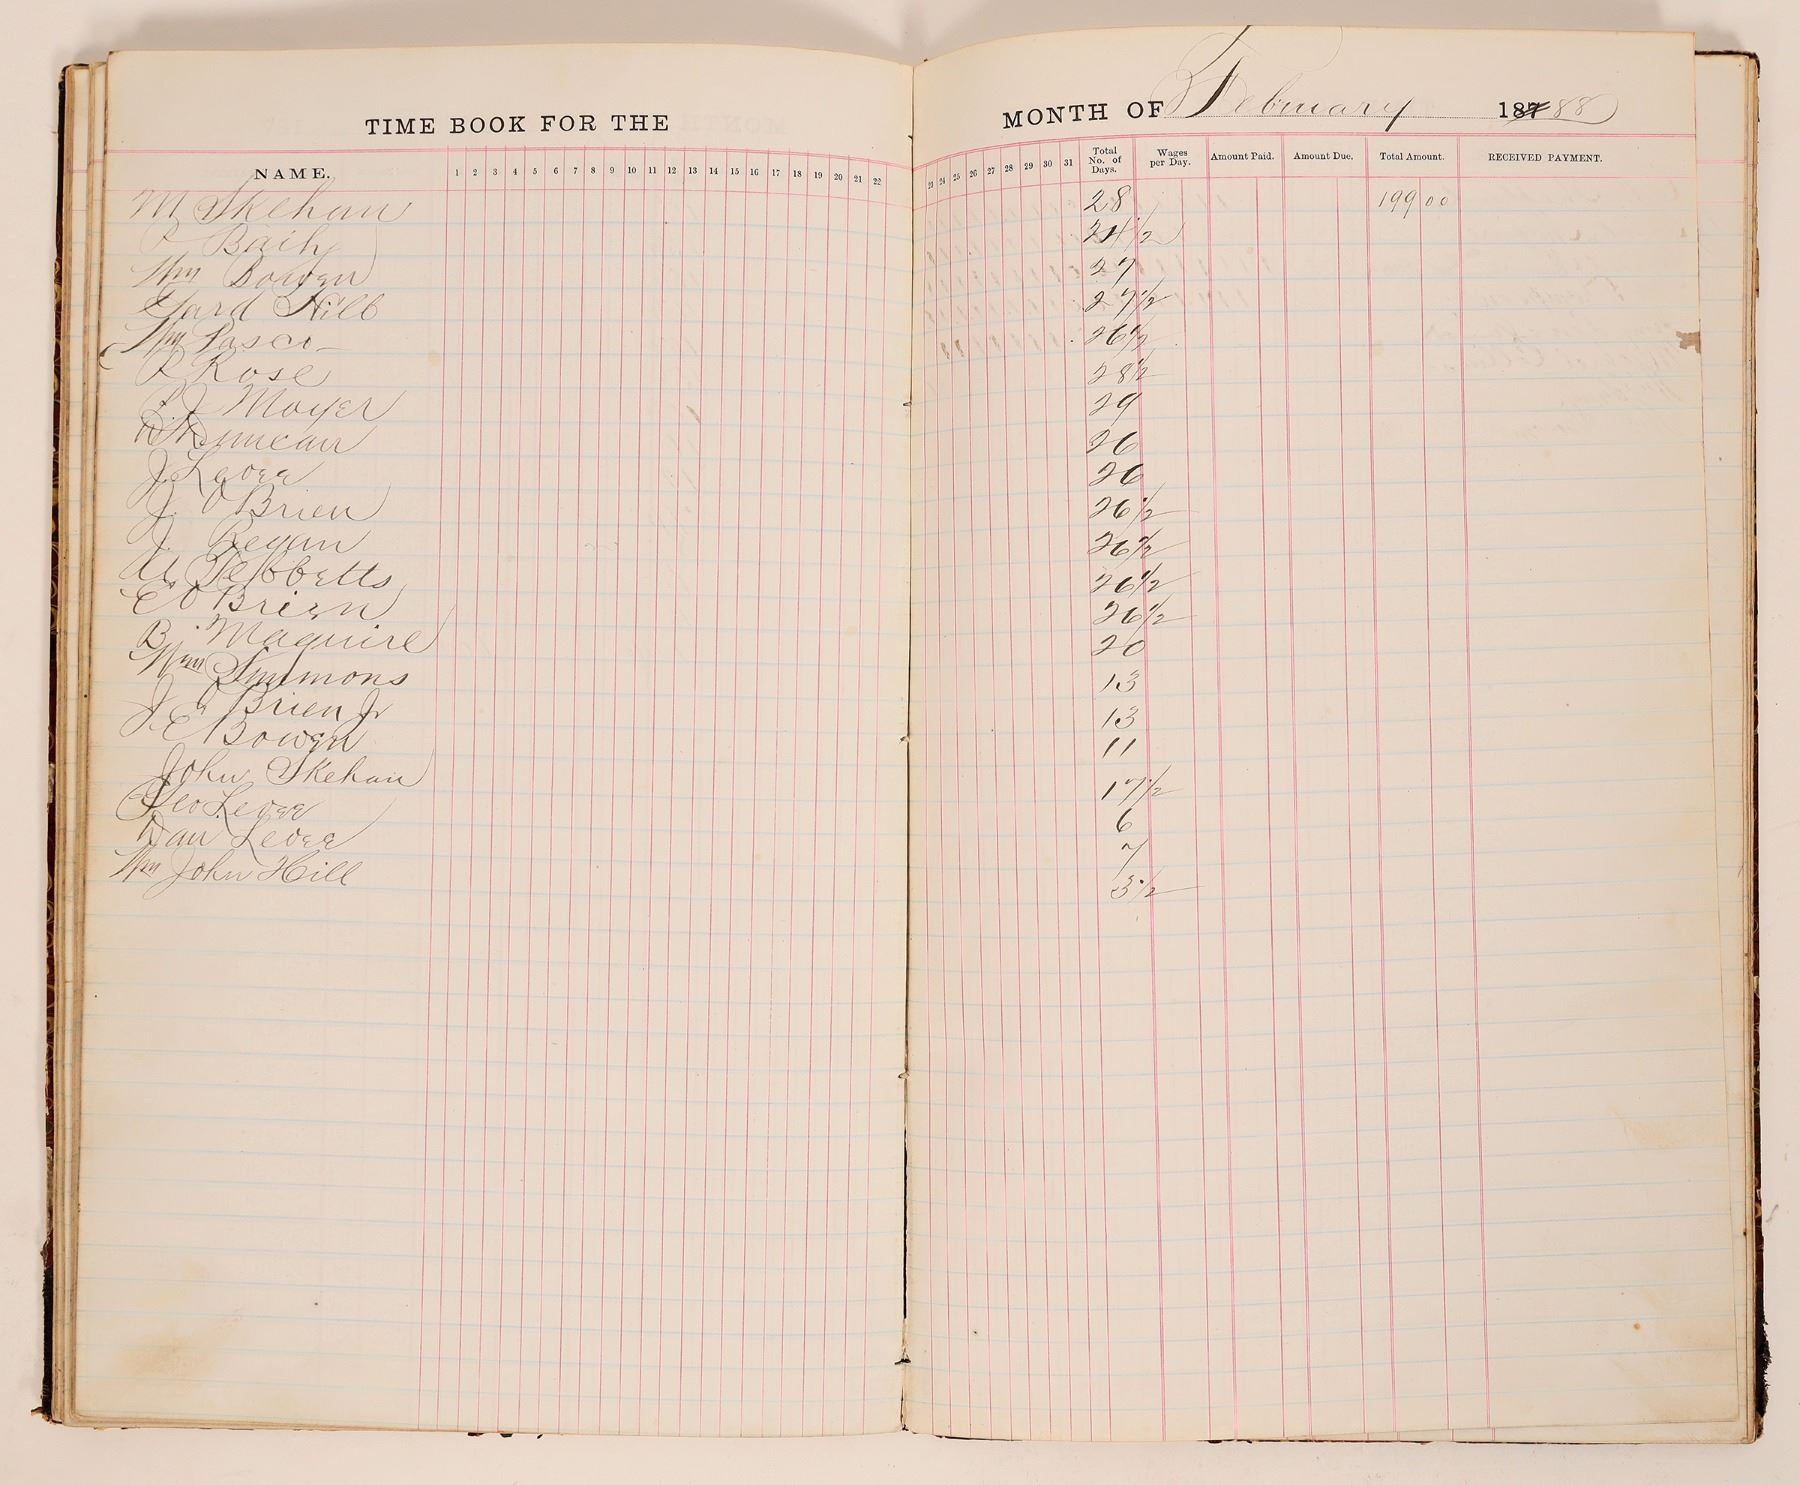 TIME BOOK FOR THE MONTH OF February 187 88
NAME. 1 2 3 4 5 6 7 8 9 10 11 12 13 14 15 16 17 18 19 20 21 22 23 24 25 26 27 28 29 30 31 Total No. of Days. Wages per Day. Amount Paid. Amount Due. Total Amount. RECEIVED PAYMENT.
M Skehan 28 199 00
P 24 1/2
Wm Bowen 27
Hill 27 1/2
Wm Pasco 26 1/2
P Rose 28 1/2
Moyer 29
Duncan 26
J. Levee 26
J. O Brien 26 1/2
J. Regan 26 1/2
Tebbetts 26 1/2
E O Brien 26 1/2
B. Maguire 20
Wm Simmons 13
J O Brien Jr 13
J. E Bowen 11
John Skehan 17 1/2
Geo Levee 6
Dan Levee 7
Wm John Hill 3 1/2